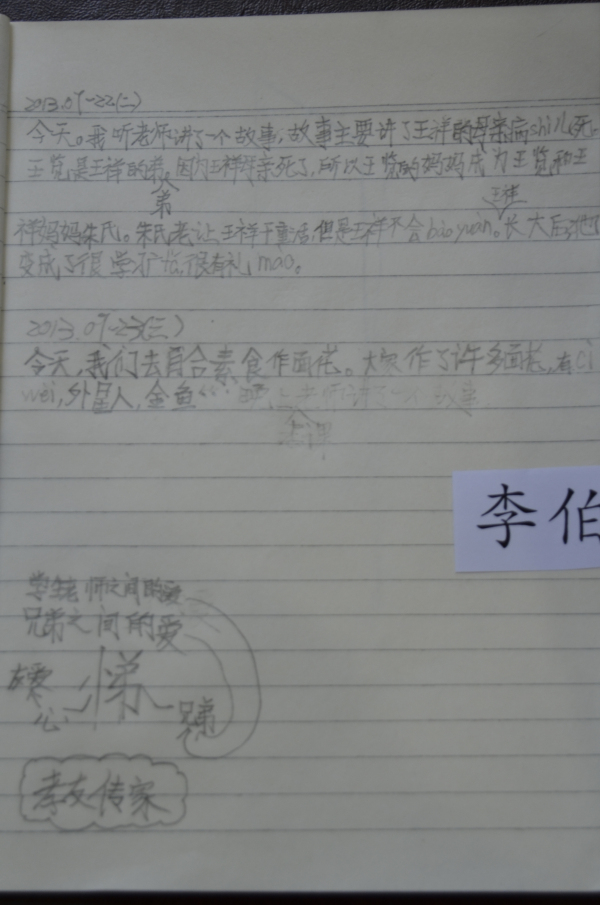 2013.07-22(二)
今天。我听老师讲了一个故事,故事主要讲了王祥的母亲病shi儿死。
王览是王祥的弟。因为王祥母亲死了,所以王览的妈妈成为王览和王
弟
祥妈妈朱氏。朱氏老让王祥干重活,但是王祥不会bào yuàn。长大后,他
变成了很 有学 很有礼mào。
2013.07-23(三)
今天,我们去百合素食作面花。大家作了许多面花,有cì
wei,外星人,金鱼……晚上老师讲了一个故事
上课
学生老师之间的爱
兄弟之间的爱
在 悌
心 兄弟
孝友传家
李伯